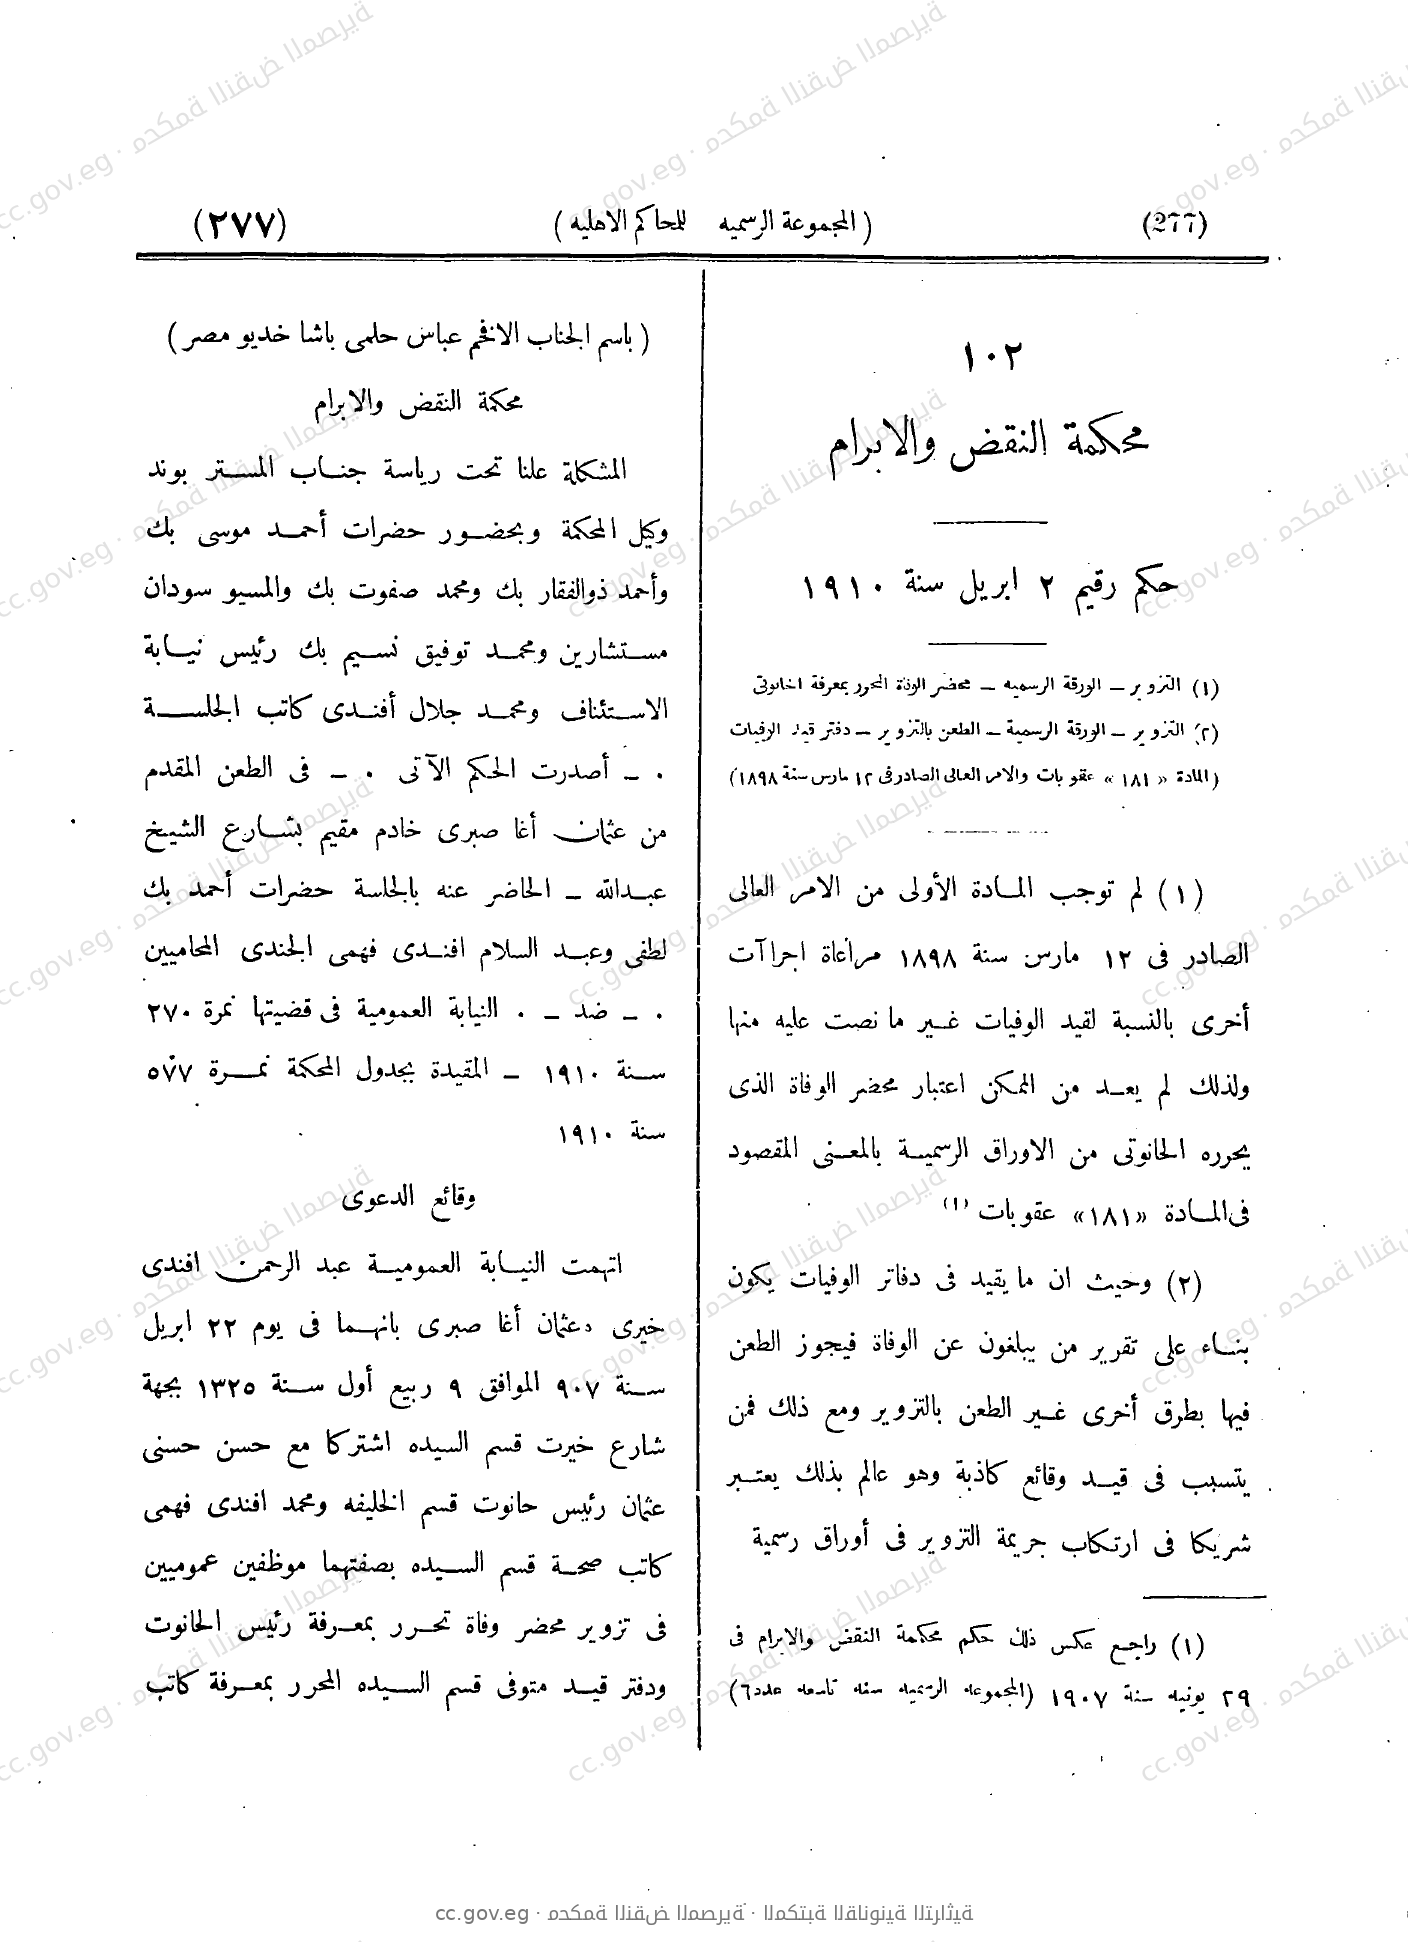 (277)
( المجموعة الرسميه للمحاكم الاهليه )
(٢٧٧)
١٠٢
محكمة النقض والابرام
حكم رقيم ٢ ابريل سنة ١٩١٠
(١) التزوير – الورقة الرسميه – محضر الوفاة المحرر بمعرفة الحانوتى
(٢) التزوير – الورقة الرسمية – الطعن بالتزوير – دفتر قيد الوفيات
(المادة « ١٨١ » عقوبات والامر العالى الصادر فى ١٢ مارس سنة ١٨٩٨)
(١) لم توجب المادة الأولى من الامر العالى
الصادر فى ١٢ مارس سنة ١٨٩٨ مراعاة اجراآت
أخرى بالنسبة لقيد الوفيات غير ما نصت عليه منها
ولذلك لم يعد من الممكن اعتبار محضر الوفاة الذى
يحرره الحانوتى من الاوراق الرسمية بالمعنى المقصود
فى المادة «١٨١» عقوبات (١)
(٢) وحيث ان ما يقيد فى دفاتر الوفيات يكون
بناء على تقرير من يبلغون عن الوفاة فيجوز الطعن
فيها بطرق أخرى غير الطعن بالتزوير ومع ذلك فمن
يتسبب فى قيد وقائع كاذبة وهو عالم بذلك يعتبر
شريكا فى ارتكاب جريمة التزوير فى أوراق رسمية
(١) راجع عكس ذلك حكم محكمة النقض والابرام فى
٢٩ يونيه سنة ١٩٠٧ (المجموعه الرسميه سنه تاسعه عدد٦)
( باسم الجناب الافخم عباس حلمى باشا خديو مصر )
محكمة النقض والابرام
المشكلة علنا تحت رياسة جناب المستر بوند
وكيل المحكمة وبحضور حضرات أحمد موسى بك
وأحمد ذوالفقار بك ومحمد صفوت بك والمسيو سودان
مستشارين ومحمد توفيق نسيم بك رئيس نيابة
الاستئناف ومحمد جلال أفندى كاتب الجلسة
٠ – أصدرت الحكم الآتى ٠ – فى الطعن المقدم
من عثمان أغا صبرى خادم مقيم بشارع الشيخ
عبدالله – الحاضر عنه بالجلسة حضرات أحمد بك
لطفى وعبد السلام افندى فهمى الجندى المحاميين
٠ – ضد – ٠ النيابة العمومية فى قضيتها نمرة ٢٧٠
سنة ١٩١٠ – المقيدة بجدول المحكمة نمرة ٥٧٧
سنة ١٩١٠
وقائع الدعوى
اتهمت النيابة العمومية عبد الرحمن افندى
خيرى وعثمان أغا صبرى بانهما فى يوم ٢٢ ابريل
سنة ٩٠٧ الموافق ٩ ربيع أول سنة ١٣٢٥ بجهة
شارع خيرت قسم السيده اشتركا مع حسن حسنى
عثمان رئيس حانوت قسم الخليفه ومحمد افندى فهمى
كاتب صحة قسم السيده بصفتهما موظفين عموميين
فى تزوير محضر وفاة تحرر بمعرفة رئيس الحانوت
ودفتر قيد متوفى قسم السيده المحرر بمعرفة كاتب
cc.gov.eg · محكمة النقض المصرية · المكتبة القانونية التراثية